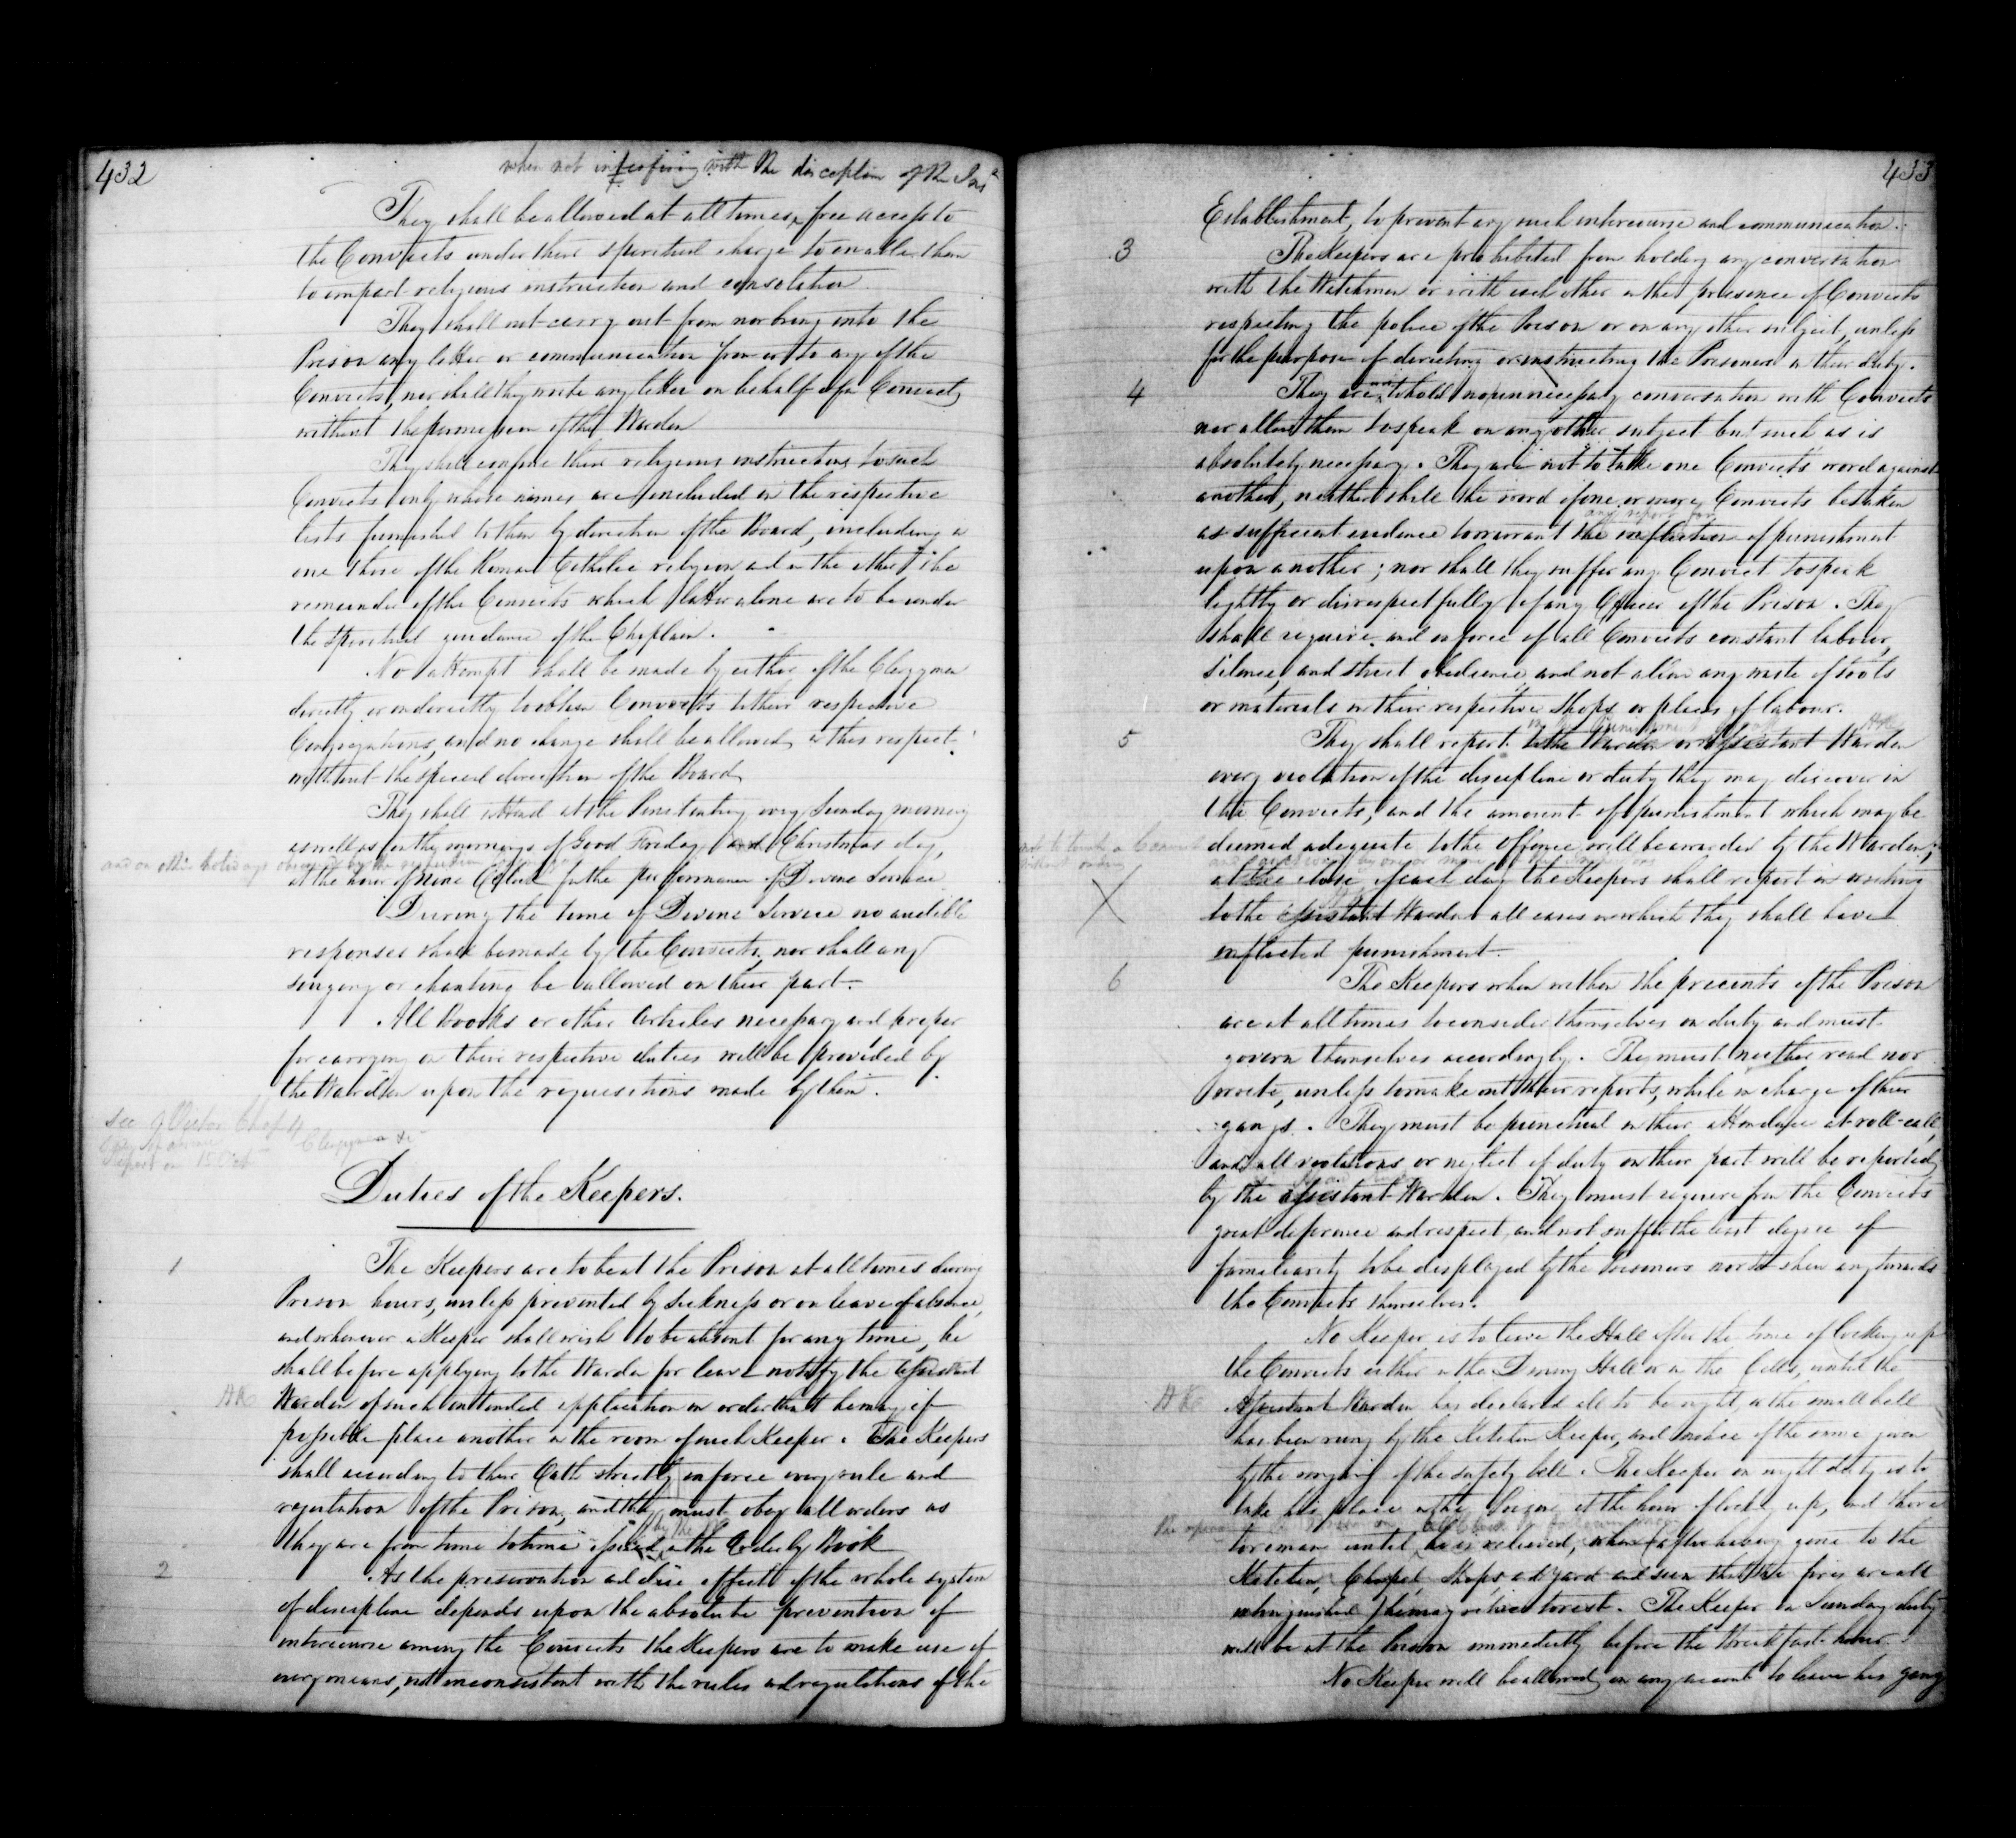 432
when not interfering with the discipline of the Ins
They shall be allowed at all times, free access to
the Convicts under their spiritual charge to enable them
to impart religious instruction and consolation
They shall not carry out from nor bring into the
Prison any letter or communication from or to any of the
Convicts, nor shall they write any letter on behalf of a Convict
without the permission of the Warden
They shall confine their religious instructions to such
Convicts only whose names are included in the respective
lists furnished to them by direction of the Board, including in
one those of the Roman Catholic religion and in the other the
remainder of the Convicts which latter alone are to be under
the spiritual guidance of the Chaplain.
No attempt shall be made by either of the Clergymen
directly or indirectly to obtain Convicts to their respective
Congregations, and no change shall be allowed in this respect
without the special direction of the Board
They shall attend at the Penitentiary every Sunday morning
as well as on the mornings of Good Friday and Christmas day,
and on other holidays observed by the
at the hour of nine O'Clock for the performance of Divine Service
During the time of Divine Service no audible
responses shall be made by the Convicts, nor shall any
singing or chanting be allowed on their part.
All Books or other Articles necessary and proper
for carrying on their respective duties will be provided by
the Warden upon the requisitions made by them.
see Chap 4
report on 15 Oct
Duties of the Keepers.
1
The Keepers are to be at the Prison at all times during
Prison hours, unless prevented by sickness or on leave of absence,
and whenever a Keeper shall wish to be absent for any time, he
shall before applying to the Warden for leave notify the Assistant
Warden of such intended application in order that he may if
possible place another in the room of such Keeper. The Keepers
shall according to their Oath strictly enforce every rule and
regulation of the Prison, and they must obey all orders as
they are from time to time issued by the in the Orderly Book
2
As the preservation and due effect of the whole system
of discipline depends upon the absolute prevention of
intercourse among the Convicts the Keepers are to make use of
every means, not inconsistent with the rules and regulations of the
433
Establishment, to prevent any such intercourse and communication.
3
The Keepers are prohibited from holding any conversation
with the Watchmen or with each other in the presence of Convicts
respecting the police of the Prison or on any other subject, unless
for the purpose of directing or instructing the Prisoners in their duty.
4
They are not to hold no unnecessary conversation with Convicts
nor allow them to speak on any other subject but such as is
absolutely necessary. They are not to take one Convict's word against
another, neither shall the word of one or more Convicts be taken
any report for
as sufficient evidence to warrant the infliction of punishment
upon another; nor shall they suffer any Convict to speak
lightly or disrespectfully of any Officer of the Prison. They
shall require and enforce of all Convicts constant labour,
silence, and strict obedience and not allow any waste of tools
or materials in their respective Shops or places of labour.
5
They shall report to the Warden or Assistant Warden
every violation of the discipline or duty they may discover in
the Convicts, and the amount of punishment which may be
deemed adequate to the offence will be awarded by the Warden;
at the close of each day the Keepers shall report in writing
to the Assistant Warden all cases in which they shall have
inflicted punishment.
6
The Keepers when within the precints of the Prison
are at all times to consider themselves on duty and must
govern themselves accordingly. They must neither read nor
write, unless to make out their reports, while in charge of their
gangs. They must be punctual in their attendance at roll-call,
and all violations or neglect of duty on their part will be reported
by the Assistant Warden. They must require from the Convicts
great deference and respect, and not suffer the least degree of
familiarity to be displayed by the Prisoners nor to shew any towards
the Convicts themselves.
No Keeper is to leave the Hall after the time of locking up
the Convicts either in the Dining Hall or in the Cells, until the
Assistant Warden has declared all to be right, or the small bell
has been rung by the Kitchen Keeper, and notice of the same given
by the ringing of the safety bell. The Keeper on night duty is to
take his place in the Prison at the hour of lock up, and there
to remain until he is relieved, when after having gone to the
Kitchen, Chapel, Shops, and yard and seen that the fires are all
extinguished he may retire to rest. The Keeper on Sunday duty
will be at the Prison immediately before the breakfast hour.
No Keeper will be allowed on any account to leave his gang